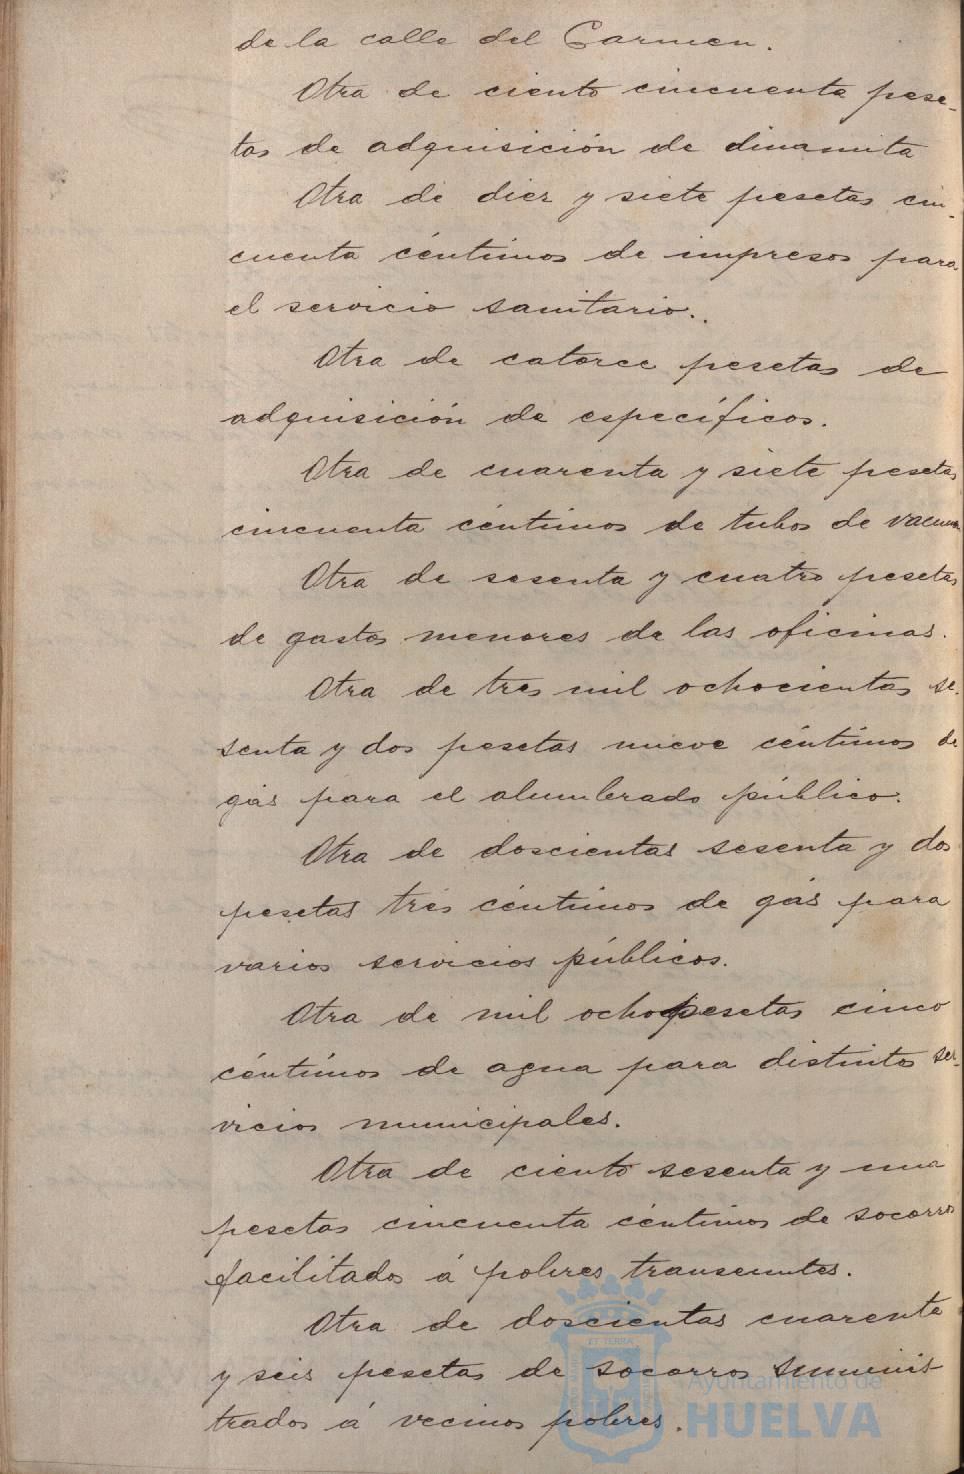 de la calle del Carmen.
Otra de ciento cincuenta pese-
tas de adquisición de dinamita
Otra de diez y siete pesetas cin-
cuenta céntimos de impresos para
el servicio sanitario.
Otra de catorce pesetas de
adquisición de específicos.
Otra de cuarenta y siete pesetas
cincuenta céntimos de tubos de vacuna
Otra de sesenta y cuatro pesetas
de gastos menores de las oficinas.
Otra de tres mil ochocientas se-
senta y dos pesetas nueve céntimos de
gás para el alumbrado público.
Otra de doscientas sesenta y dos
pesetas tres céntimos de gás para
varios servicios públicos.
Otra de mil ocho pesetas cinco
céntimos de agua para distintos ser-
vicios municipales.
Otra de ciento sesenta y una
pesetas cincuenta céntimos de socorros
facilitados á pobres transeuntes.
Otra de doscientas cuarenta
y seis pesetas de socorros suminis-
trados á vecinos pobres.
ET TERRA
Ayuntamiento de
HUELVA